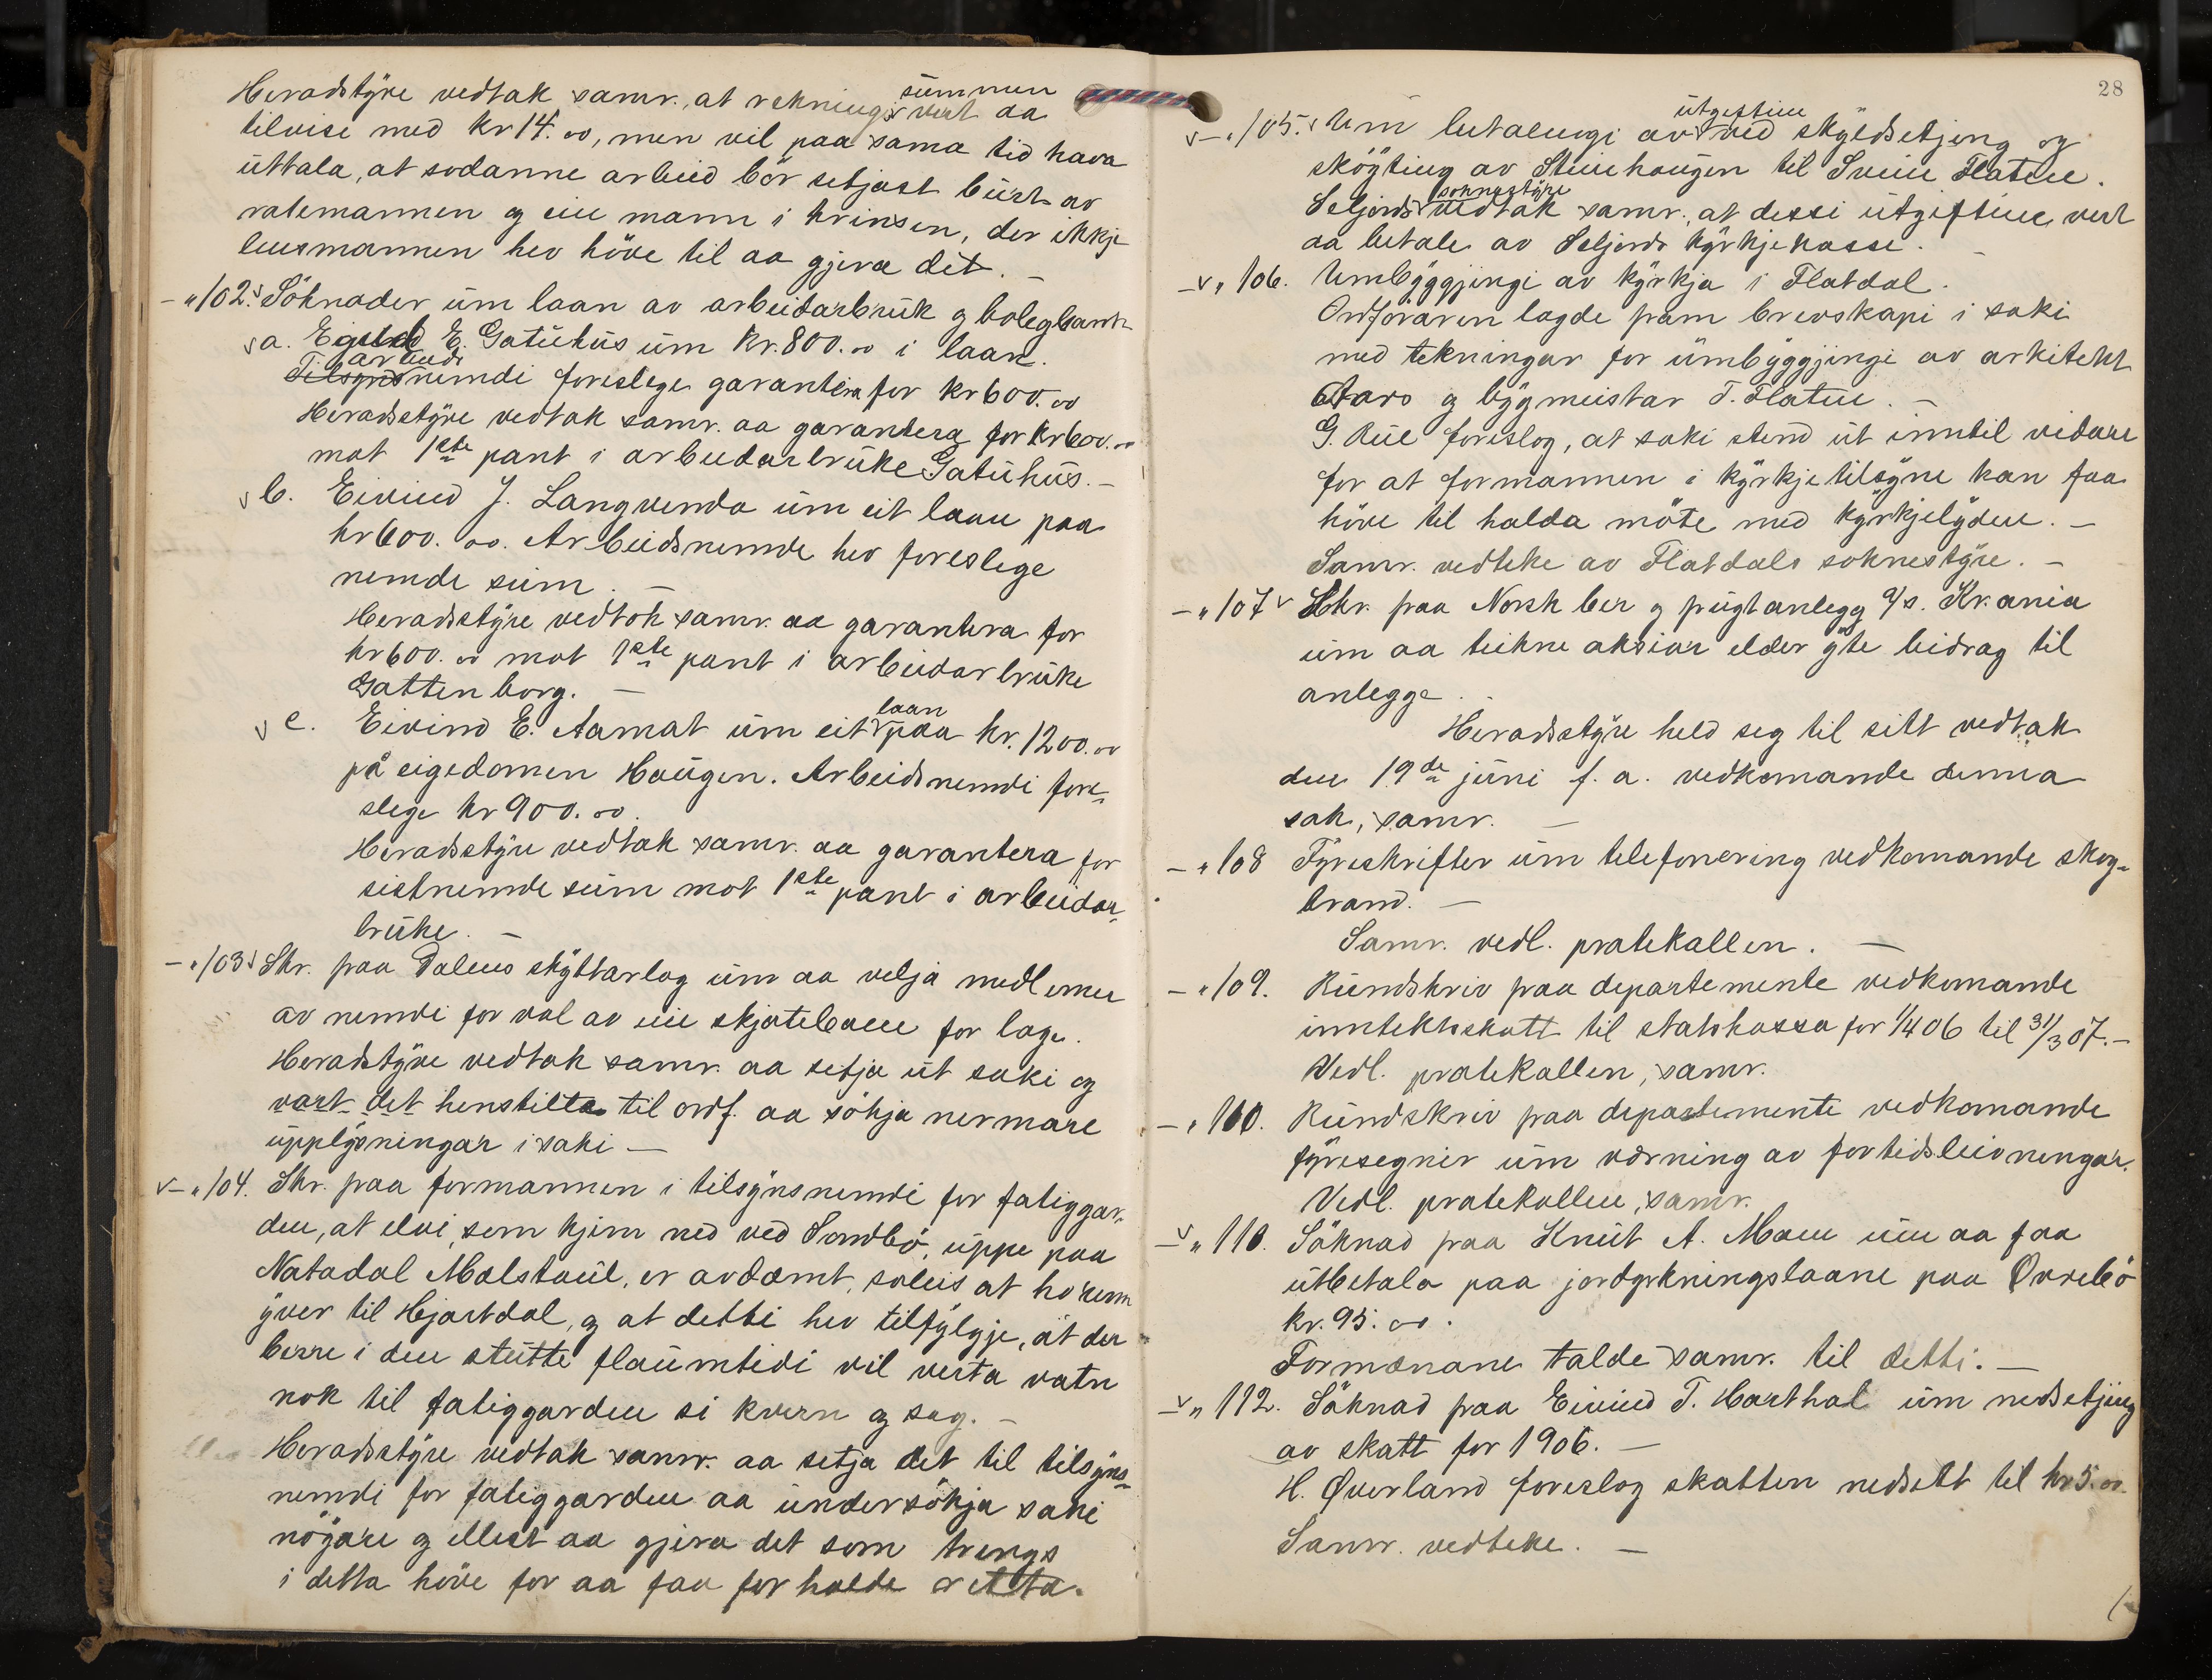 Heradstyre vedtak samr., at reknings summen vert aa
tilvise med kr 14.00, men vil paa sama tid hava
uttala, at sodanne arbeid bør setjast burt av
ratemannen og ein mann i krinsen, der ikkje
lensmannen hev høve til aa gjera det. —
— " 102. Söknader um laan av arbeidarbruk og bolegbank
a. Egild E. Gatuhus um kr. 800.00 i laan.
Tilsyns arbeids nemdi foreslege garantera for kr 600.00
Heradsstyre vedtak samr. aa garantera for kr 600.00
mot 1ste pant i arbeidarbruke Gatuhus. —
b. Eivind J. Langvenda um eit laan paa
kr 600.00. Arbeidsnemde hev foreslege
nemde sum. —
Heradsstyre vedtok samr. aa garantera for
kr 600.00 mot 1ste pant i arbeidarbruke
Gattenborg. —
c. Eivind E. Aamat um eit laan paa kr. 1200.00
på eigedomen Haugen. Arbeidsnemdi fore-
slege kr 900.00.
Heradsstyre vedtak samr. aa garantera for
sistnemde sum mot 1ste pant i arbeidar-
bruke. —
— " 103 Skr. paa Dalens skyttarlag um aa velja medlemer
av nemdi for val av ein skjotebane for lage.
Heradstyre vedtak samr. aa setja ut saki og
vart det henstilla til ordf. aa søkja nermare
upplysningar i saki —
— " 104. Skr. paa formannen i tilsynsnemdi for fatiggar-
den, at elvi, som kjem ned ved Sandbø, uppe paa
Natadal Mælstaul, er avdæmt, soleis at ho renn
yver til Hjartdal, og at detti hev tilfylgje, at der
berre i den stutte flaumtidi vil verta vatn
nok til fatiggarden si kvern og sag. —
Heradsstyre vedtak samr. aa setja det til tilsyns-
nemdi for fatiggarden aa undersøkja saki
nøgare og ellest aa gjera det som trengs
i detta høve for aa faa forholde retta.
28
— " 105. Um betalingi av utgiftine ved skyldsetjing og
skøyting av Steinhaugen til Svein Flatin.
Seljords soknestyre vedtak samr., at dessi utgiftine vert
aa betale av Seljords kyrkjekasse. —
— " 106. Umbyggjingi av kyrkja i Flatdal.
Ordføraren lagde fram brevskapi i saki
med tekningar for umbyggjingi av arkitekt
Aars og bygmeistar T. Flatin. —
G. Rue foreslog, at saki stend ut inntil vidare
for at formannen i kyrkjetilsyne kan faa
høve til halda møte med kyrkjelyden. —
Samr. vedteke av Flatdals soknestyre. —
— " 107 Skr. paa Norsk bær og frugtanlegg a/s. Kr.ania
um aa teikne aksiar elder yte bidrag til
anlegge.
Heradsstyre held seg til sitt vedtak
den 19de juni f. a. vedkomande denna
sak, samr. —
— " 108 Fyreskrifter um telefonering vedkomande skog-
brand. —
Samr. vedl. pratekallen. —
— " 109. Rundskriv paa departemente vedkomande
inntektsskatt til statskassa for 1/4 06 til 31/3 07. —
Vedl. pratekallen, samr.
— " 110. Rundskriv paa departemente vedkomande
fyresegner um værning av fortidsleivningar.
Vedl. pratekallen, samr.
— " 110. Söknad paa Knut A. Moen um aa faa
utbetala paa jordyrkningslaane paa Øvrebø
kr. 95.00.
Formænane talde samr. til detti. —
— " 112. Söknad paa Eivind T. Harthal um nedsetjing
av skatt for 1906. —
H. Øverland foreslog skatten nedsett til kr 5.00.
Samr. vedteke. —